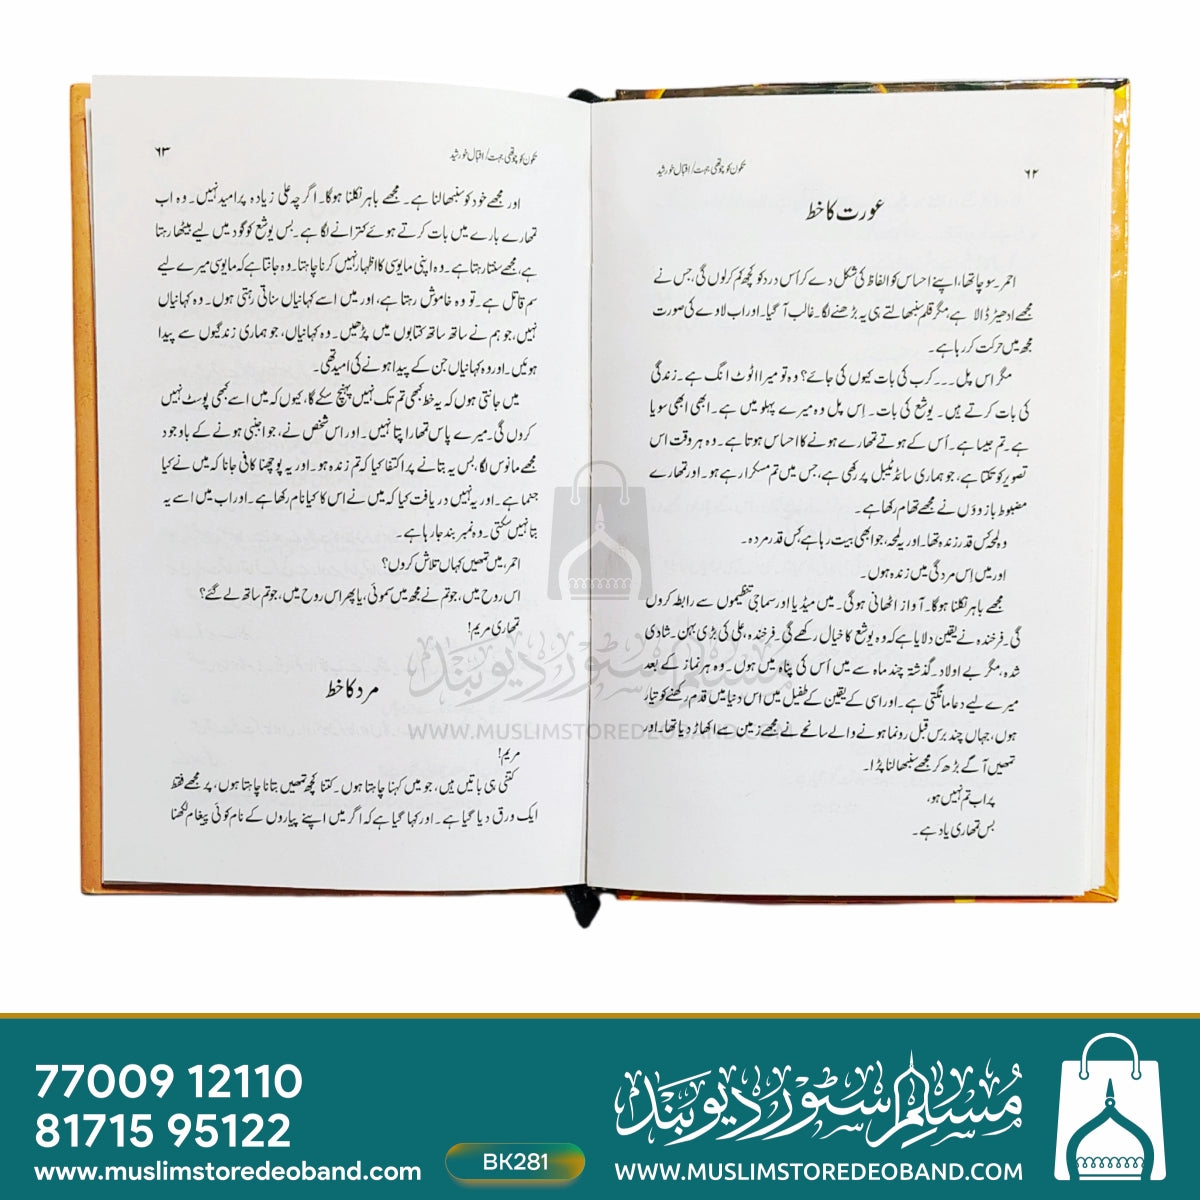 ۶۲
تکون کی چوتھی جہت/ اقبال خورشید
عورت کا خط
احمر۔ سوچا تھا، اپنے احساس کو الفاظ کی شکل دے کر اُس درد کو کچھ کم کر لوں گی، جس نے
مجھے ادھیڑ ڈالا ہے مگر قلم سنبھالتے ہی یہ بڑھنے لگا۔ غالب آ گیا۔ اور اب لاوے کی صورت
مجھ میں حرکت کر رہا ہے۔
مگر اس پل ۔۔۔ کرب کی بات کیوں کی جائے؟ وہ تو میرا اٹوٹ انگ ہے۔ زندگی
کی بات کرتے ہیں۔ یوشع کی بات۔ اِس پل وہ میرے پہلو میں ہے۔ ابھی ابھی سویا
ہے۔ تم جیسا ہے۔ اُس کے ہوتے تمھارے ہونے کا احساس ہوتا ہے۔ وہ ہر وقت اس
تصویر کو تکتا ہے، جو ہماری سائڈ ٹیبل پر رکھی ہے، جس میں تم مسکرا رہے ہو۔ اور تمھارے
مضبوط بازوؤں نے مجھے تھام رکھا ہے۔
وہ لمحہ کس قدر زندہ تھا۔ اور یہ لمحہ، جو ابھی بیت رہا ہے کس قدر مردہ۔
اور میں اِس مردگی میں زندہ ہوں۔
مجھے باہر نکلنا ہوگا۔ آواز اٹھانی ہوگی۔ میں میڈیا اور سماجی تنظیموں سے رابطہ کروں
گی۔ فرخندہ نے یقین دلایا ہے کہ وہ یوشع کا خیال رکھے گی۔ فرخندہ، علی کی بڑی بہن۔ شادی
شدہ، مگر بے اولاد۔ گذشتہ چند ماہ سے میں اُس کی پناہ میں ہوں۔ وہ ہر نماز کے بعد
میرے لیے دعا مانگتی ہے۔ اور اسی کے یقین کے طفیل میں اس دنیا میں قدم رکھنے کو تیار
ہوں، جہاں چند برس قبل رونما ہونے والے سانحے نے مجھے زمین سے اکھاڑ دیا تھا۔ اور
تمھیں آگے بڑھ کر مجھے سنبھالنا پڑا۔
پر اب تم نہیں ہو،
بس تمھاری یاد ہے۔
تکون کی چوتھی جہت/ اقبال خورشید
۶۳
اور مجھے خود کو سنبھالنا ہے۔ مجھے باہر نکلنا ہوگا۔ اگرچہ علی زیادہ پرامید نہیں۔ وہ اب
تمھارے بارے میں بات کرتے ہوئے کترانے لگا ہے۔ بس یوشع کو گود میں لیے بیٹھا رہتا
ہے، مجھے سنتا رہتا ہے۔ وہ اپنی مایوسی کا اظہار نہیں کرنا چاہتا۔ وہ جانتا ہے کہ مایوسی میرے لیے
سم قاتل ہے۔ تو وہ خاموش رہتا ہے، اور میں اسے کہانیاں سناتی رہتی ہوں۔ وہ کہانیاں
نہیں، جو ہم نے ساتھ ساتھ کتابوں میں پڑھیں۔ وہ کہانیاں، جو ہماری زندگیوں سے پیدا
ہوئیں۔ اور وہ کہانیاں جن کے پیدا ہونے کی امید تھی۔
میں جانتی ہوں کہ یہ خط کبھی تم تک نہیں پہنچ سکے گا، کیوں کہ میں اسے کبھی پوسٹ نہیں
کروں گی۔ میرے پاس تمھارا پتا نہیں۔ اور اس شخص نے، جو اجنبی ہونے کے باوجود
مجھے مانوس لگا، بس یہ بتانے پر اکتفا کیا کہ تم زندہ ہو۔ اور یہ پوچھنا کافی جانا کہ میں نے کیا
جنما ہے۔ اور یہ نہیں دریافت کیا کہ میں نے اس کا کیا نام رکھا ہے۔ اور اب میں اسے یہ
بتا نہیں سکتی۔ وہ نمبر بند جا رہا ہے۔
احمر، میں تمھیں کہاں تلاش کروں؟
اس روح میں، جو تم نے مجھ میں سموئی، یا پھر اس روح میں، جو تم ساتھ لے گئے؟
تمھاری مریم!
مرد کا خط
مریم!
کتنی ہی باتیں ہیں، جو میں کہنا چاہتا ہوں۔ کتنا کچھ تمھیں بتانا چاہتا ہوں، پر مجھے فقط
ایک ورق دیا گیا ہے۔ اور کہا گیا ہے کہ اگر میں اپنے پیاروں کے نام کوئی پیغام لکھنا
مسلم سٹور دیوبند
WWW.MUSLIMSTOREDEOBAND.COM
77009 12110
81715 95122
www.muslimstoredeoband.com
BK281
مسلم سٹور دیوبند
WWW.MUSLIMSTOREDEOBAND.COM